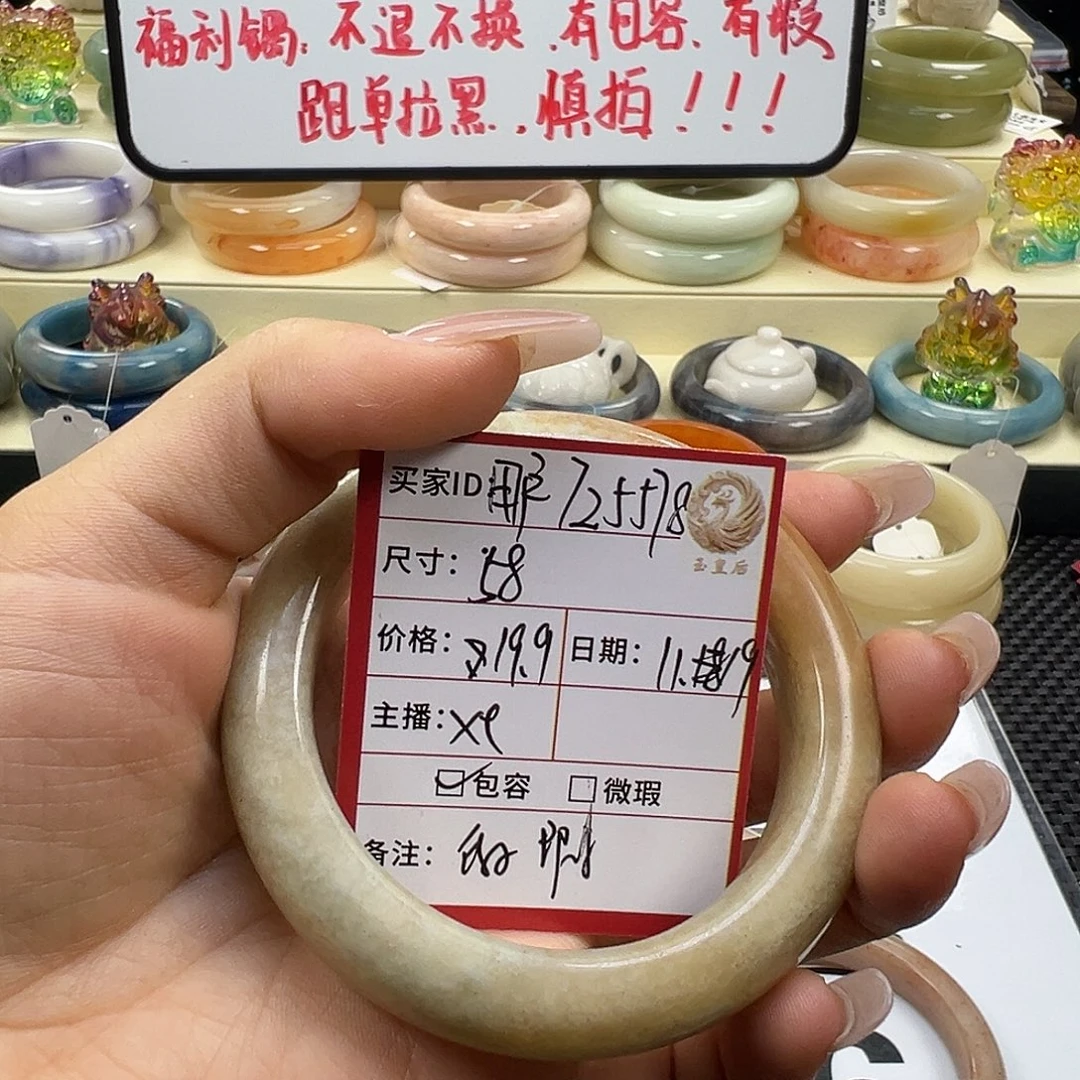 福利镯: 不退不换, 有包容、有瑕
跟单拉黑, 慎拍!!!
买家ID 那 725578
玉皇后
尺寸: 58
价格: 19.9 日期: 11.19
主播: XY
包容 微瑕
备注: